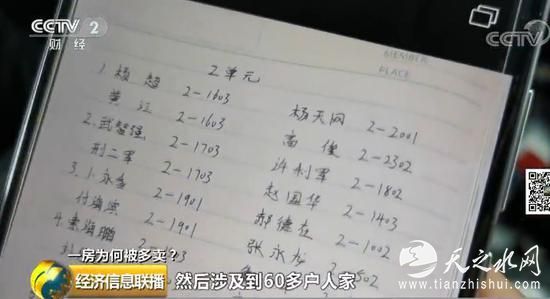 CCTV 2
财经
CCTV
MEMBER
PLACE
2单元
1. 杨超 2-1603 杨天网 2-2001
黄江 2-1603 高俊 2-2302
2. 武智强 2-1703 许利军 2-1802
邢二军 2-1703 赵国华 2-1403
3. 2-1901 郝德在 2-1002
付海滨 2-1901 张永龙
4. 海鹏
一房为何被多卖？
经济信息联播 然后涉及到60多户人家
天之水网
www.tianzhishui.com